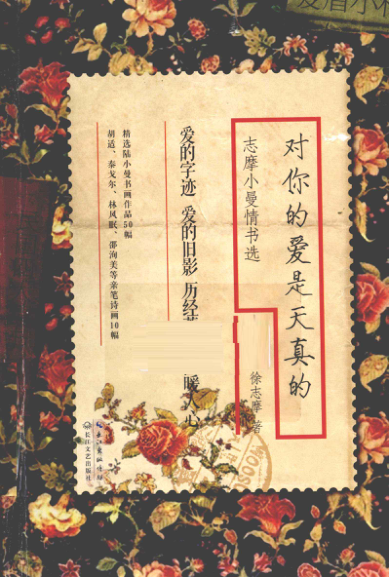 对你的爱是天真的
志摩小曼情书选
徐志摩 著
爱的字迹 爱的旧影 历经
暖人心
精选陆小曼书画作品50幅
胡适、泰戈尔、林风眠、邵洵美等亲笔诗画10幅
长江文艺出版社